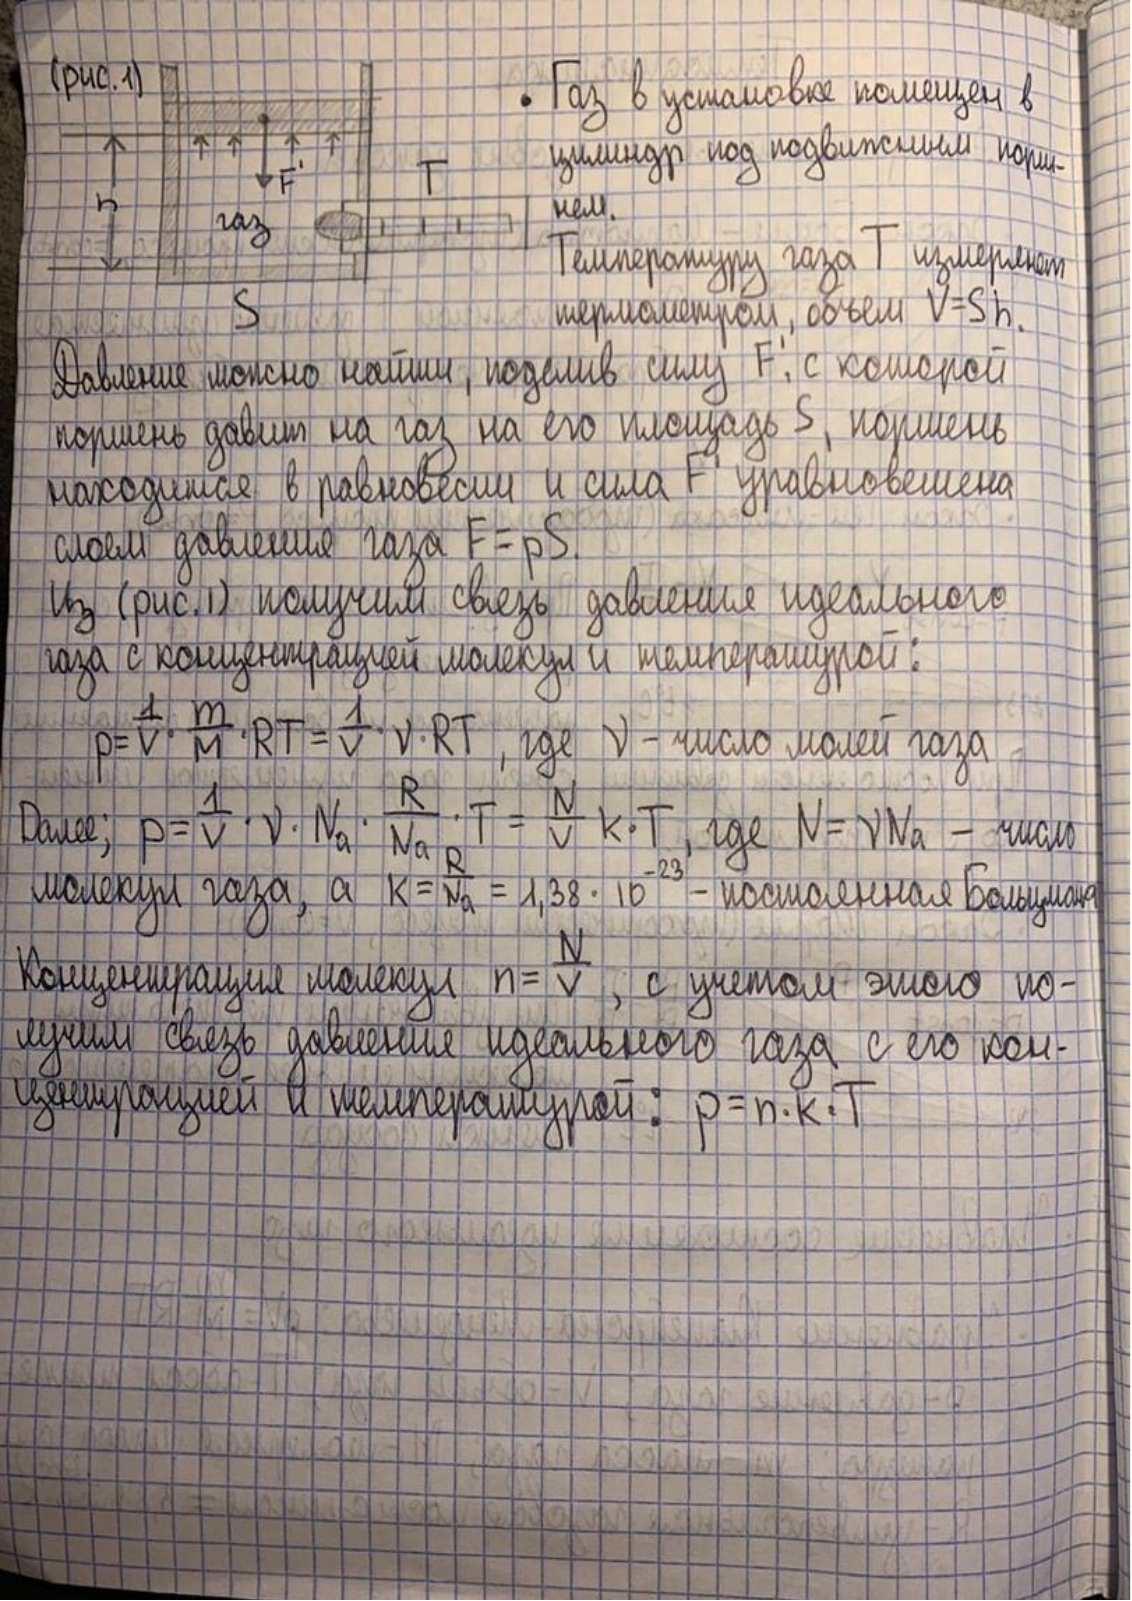 (рис.1)
h
газ
F'
T
S
• Газ в установке помещен в
цилиндр под подвижным порш-
нем.
Температуру газа T измеряют
термометром, объем V=Sh.
Давление можно найти, поделив силу F', с которой
поршень давит на газ на его площадь S, поршень
находится в равновесии и сила F' уравновешена
слоем давления газа F=pS.
Из (рис.1) получим связь давления идеального
газа с концентрацией молекул и температурой:
p=1/V · m/M · RT = 1/V · ν · RT, где ν – число молей газа
Далее; p = 1/V · ν · Na · R/Na · T = N/V k · T, где N = νNa – число
молекул газа, а k = R/Na = 1,38 · 10⁻²³ – постоянная Больцмана
Концентрация молекул n = N/V, с учетом этого по-
лучим связь давления идеального газа с его кон-
центрацией и температурой: p=n·k·T